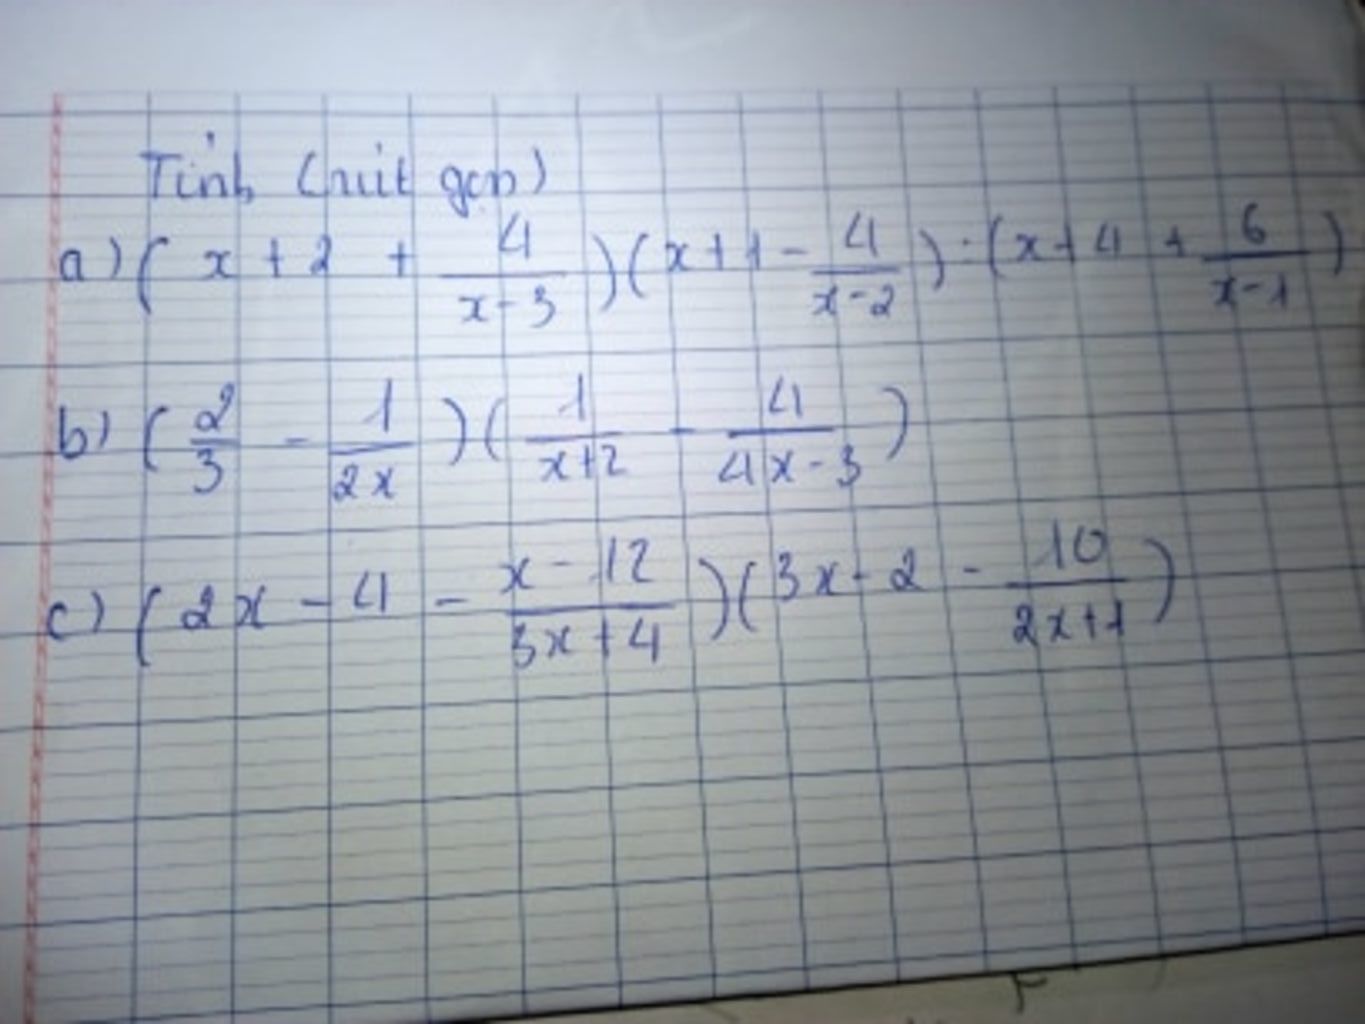 Tính (rút gọn)
a) ( x + 2 + 4/(x-3) ) ( x + 1 - 4/(x-2) ) : ( x + 4 + 6/(x-1) )
b) ( 2/3 - 1/(2x) ) ( 1/(x+2) - 4/(4x-3) )
c) ( 2x - 4 - (x-12)/(3x+4) ) ( 3x - 2 - 10/(2x+1) )